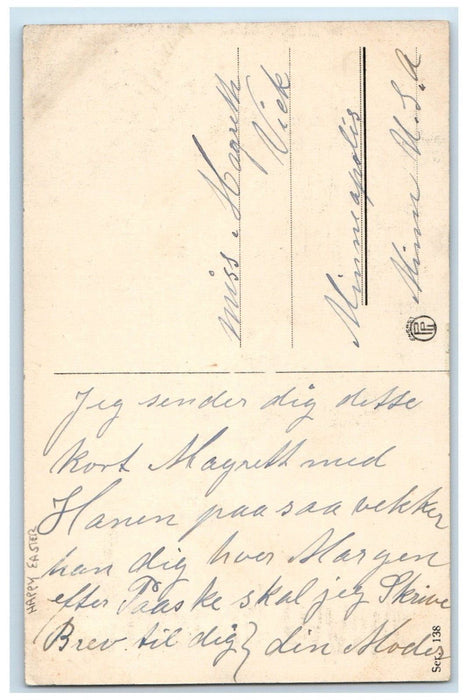 miss Magreth
Vick
Minneapolis
Minn U.S.A
Jeg sender dig dette
kort Magrett med
Hanen paa saa vekker
han dig hver Margen
efter Paaske skal jeg Skrive
(Brev til dig) din Moder
HAPPY EASTER
Ser. 138